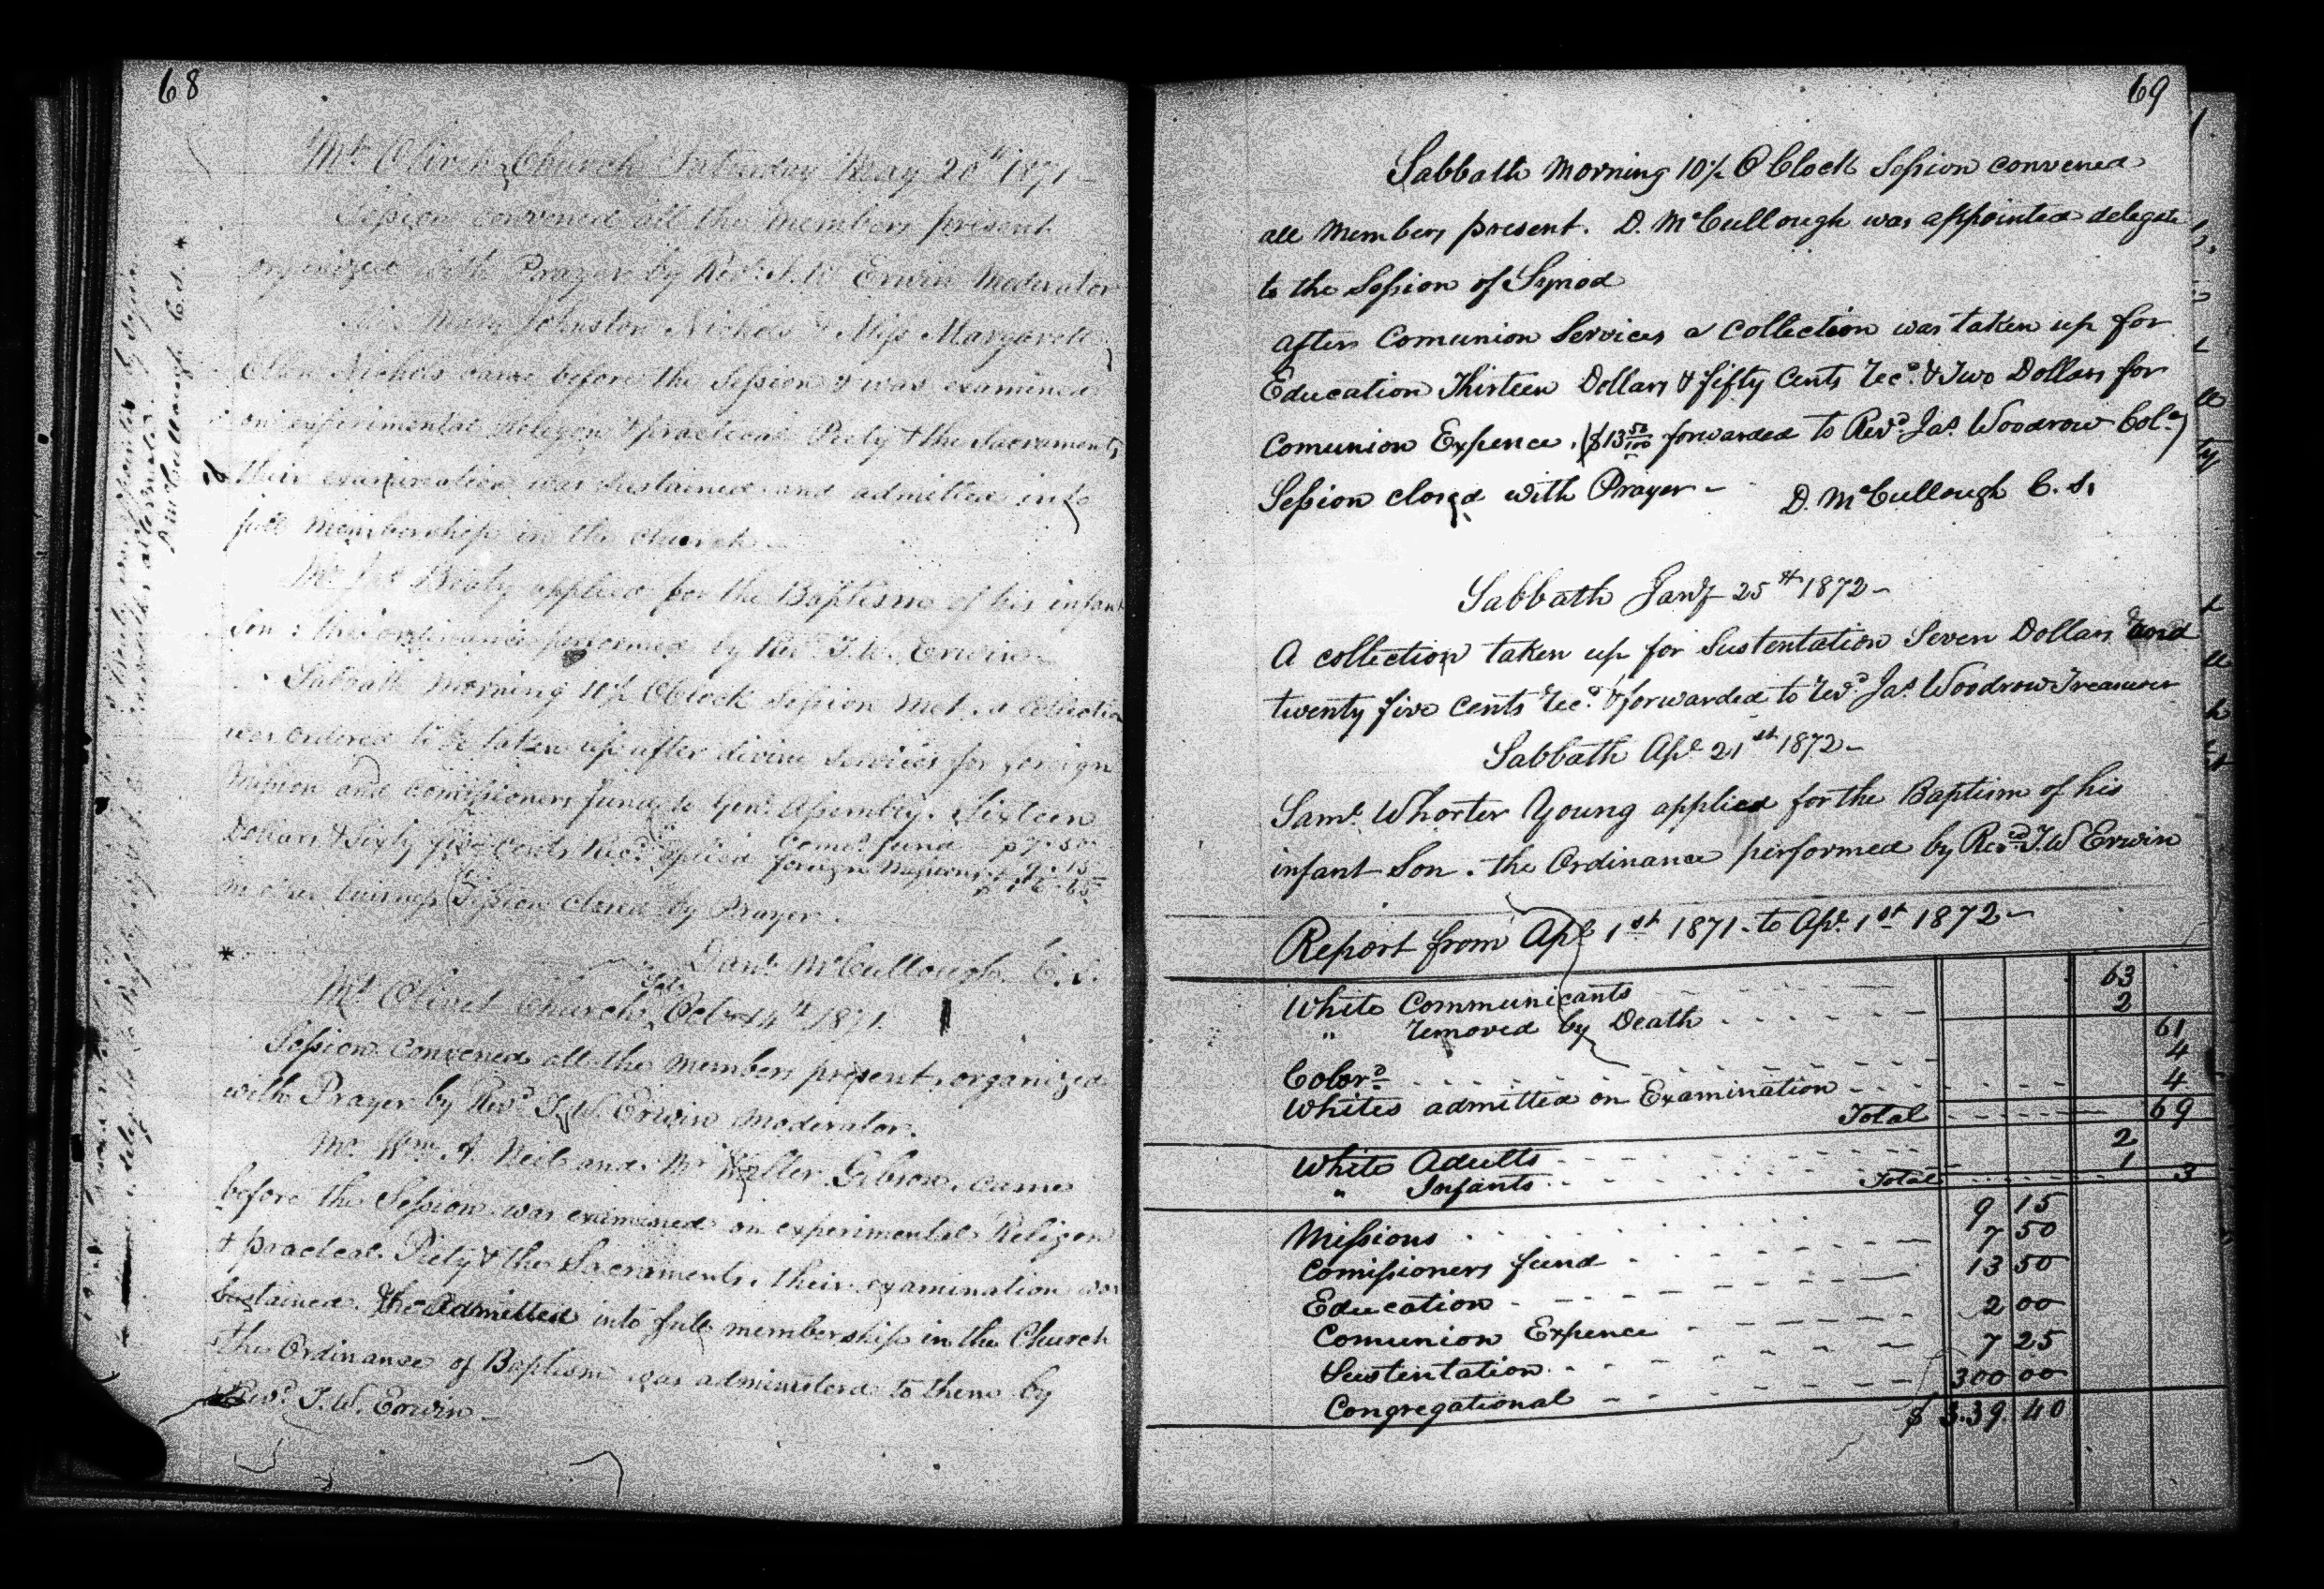 68
Mt Olivet Church Saturday May 20th 1871
Session convened all the members present
organized with Prayer by Revd. T. W. Erwin Moderator
Johnston Nichols & Miss Margarett
Ellen Nichols came before the Session & was examined
on experimental Religion & practical Piety & the Sacraments
their examination was sustained and admitted into
full membership in the church
Mr Beaty applied for the Baptism of his infant
Son : the ordinance performed by Revd T. W. Erwin
Sabbath morning 10½ OClock Session met. a Collection
was ordered to be taken up after divine Services for foreign
Mission and Comissioners fund to Genl. Assembly. Sixteen
Dollars & Sixty five Cents Recd. aplied Comrs. fund $7.50
foreign Missions 9.15
no other buisness Session closed by Prayer.
Danl. McCullough C. S.
Mt Olivet Church Oct 14th 1871.
Session convened all the members present, organized
with Prayer by Revd T. W. Erwin Moderator.
Mr. Wm. A. Neil and Mr Waller Gibson, came
before the Session was examined on experimental Religion
& practcal Piety & the Sacraments. their examination was
sustained. & admitted into full membership in the Church
the Ordinance of Baptism was administered to them by
Revd. T. W. Erwin
D McCullough C. S. *
69
Sabbath Morning 10½ O Clock Session convened
all Members present. D. McCullough was appointed delegate
to the Session of Synod
after Comunion Services a Collection was taken up for
Education Thirteen Dollars & fifty Cents Recd. & Two Dollars for
Comunion Expence. ($13 50/100 forwarded to Revd. Jas. Woodrow Cola)
Session closed with Prayer - D. McCullough C. S.
Sabbath Jany 25th 1872 -
A collection taken up for Sustentation Seven Dollars and
twenty five cents Recd. & forwarded to Revd. Jas. Woodrow Treasurer
Sabbath Apl. 21st 1872 -
Saml. Whorter Young applied for the Baptism of his
infant Son. the Ordinance performed by Revd. T. W Erwin
Report from Apl 1st 1871 - to Apl. 1st 1872 -
White Communicants 63
" removed by Death 2 61
Colord 4
Whites admitted on Examination 4
Total 69
White Adults 2
" Infants 1 Total 3
Missions 9 15
Comissioners fund 7 50
Education 13 50
Comunion Expence 2 00
Sustentation 7 25
Congregational 300 00
$ 339 40